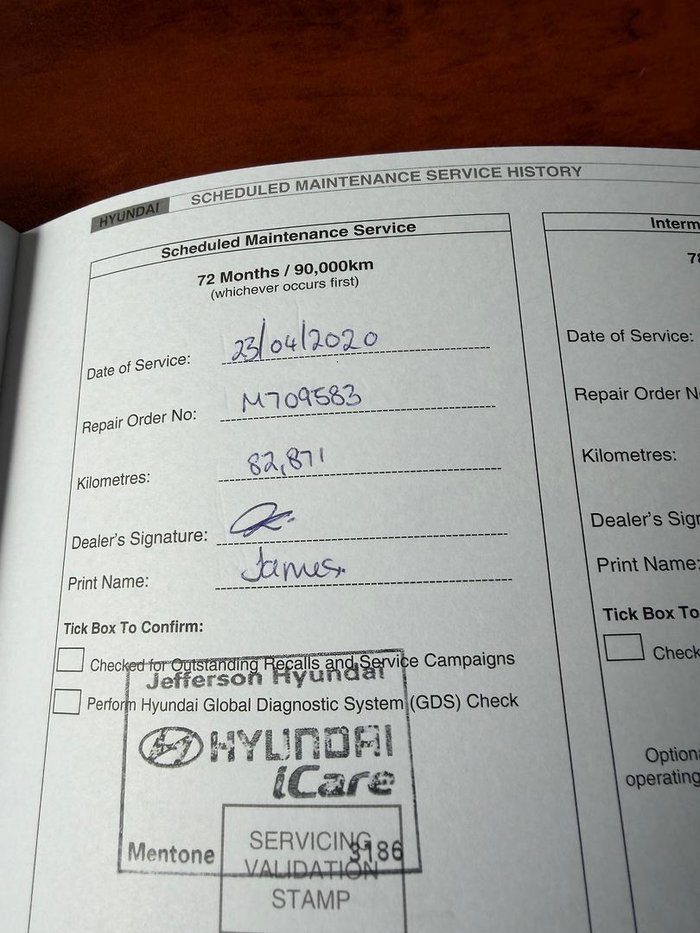 HYUNDAI
SCHEDULED MAINTENANCE SERVICE HISTORY
Scheduled Maintenance Service
72 Months / 90,000km
(whichever occurs first)
Date of Service: 23/04/2020
Repair Order No: M709583
Kilometres: 82,871
Dealer's Signature:
Print Name: James.
Tick Box To Confirm:
Checked for Outstanding Recalls and Service Campaigns
Perform Hyundai Global Diagnostic System (GDS) Check
Jefferson Hyundai
HYUNDAI
iCare
Mentone 3186
SERVICING
VALIDATION
STAMP
Interm
78
Date of Service:
Repair Order N
Kilometres:
Dealer's Sign
Print Name:
Tick Box To
Check
Optiona
operating